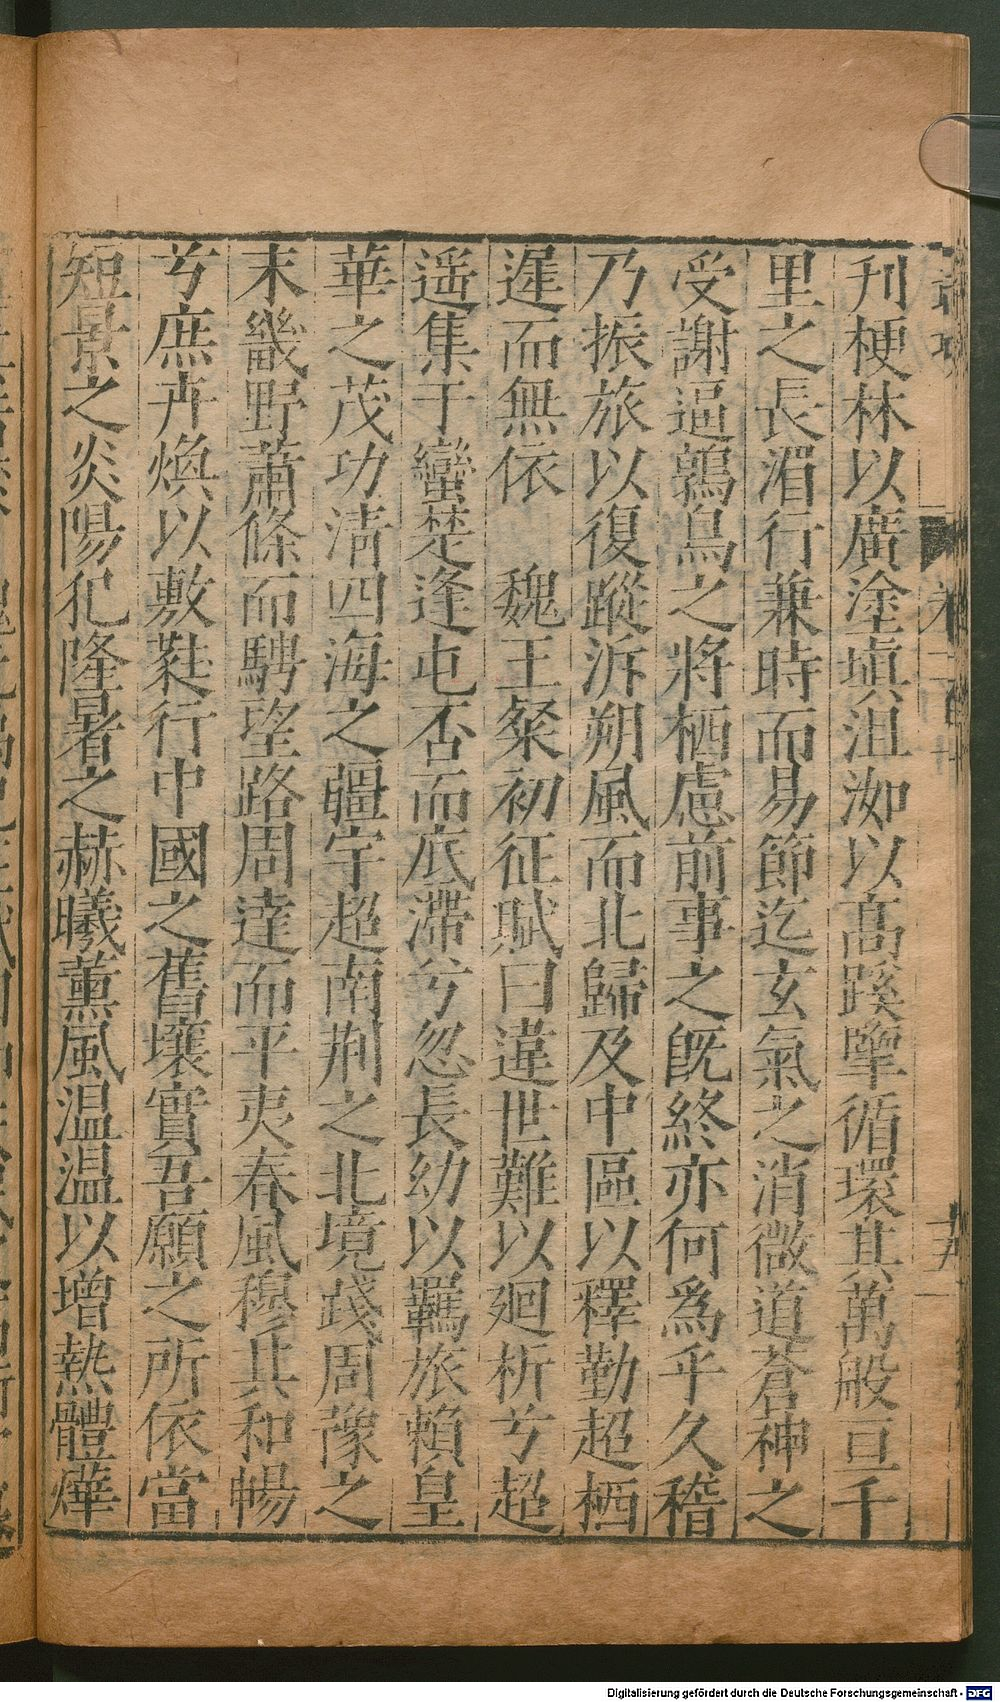 刋梗林以廣塗塡沮洳以高蹊擥循環其萬艘亘千
里之長湄行兼時而易節迄玄氣之消微道蒼神之
受謝逼鶉鳥之將栖慮前事之旣終亦何爲乎久稽
乃振旅以復蹤泝朔風而北歸及中區以釋勤超栖
遲而無依　魏王粲初征賦曰違世難以廻折兮超
遥集于蠻楚逢屯否而底滯兮忽長幼以羈旅賴皇
華之茂功淸四海之疆宇超南荆之北境踐周豫之
末畿野蕭條而騁望路周達而平夷春風穆其和暢
兮庶卉煥以敷蘂行中國之舊壤實吾願之所依當
短景之炎陽犯隆暑之赫曦薰風温温以增熱體燁
Digitalisierung gefördert durch die Deutsche Forschungsgemeinschaft - DFG